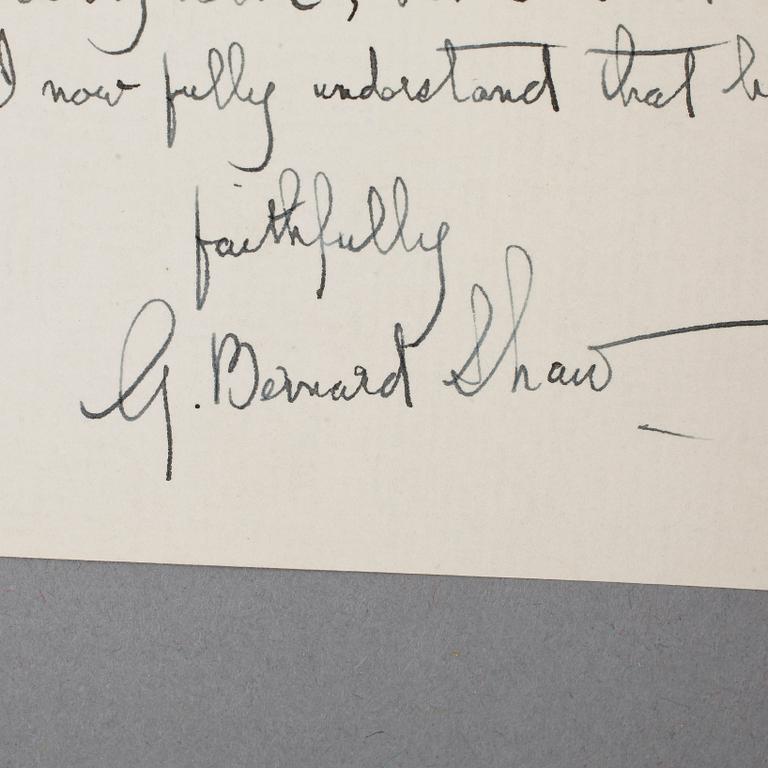 I now fully understand that
faithfully
G. Bernard Shaw